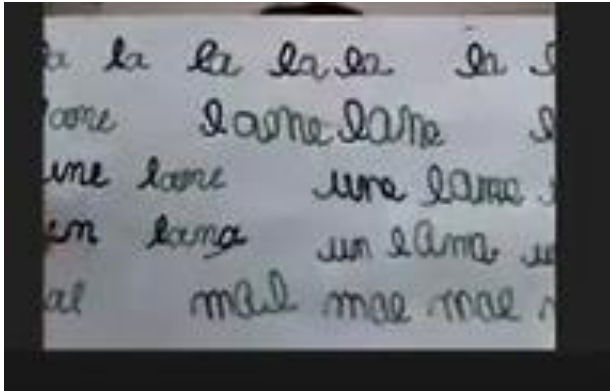 la la la la la
lame lame
une lame une lame
un lama un lama
mal mal mal